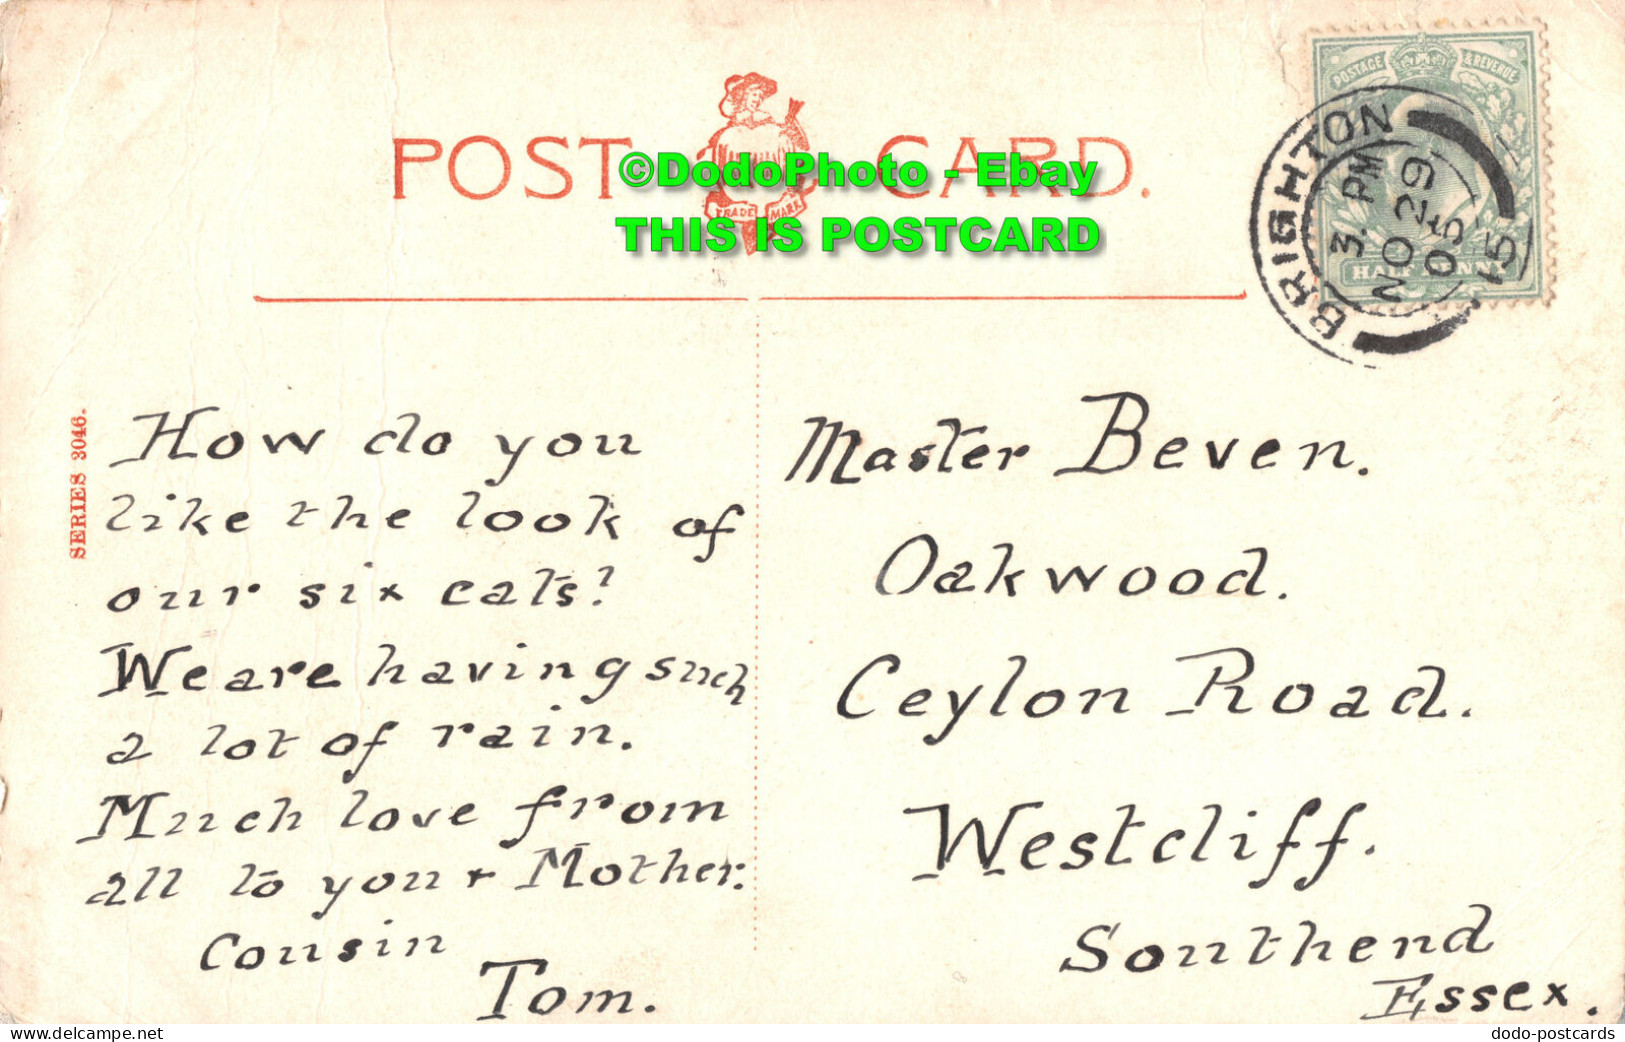 POST CARD.
TRADE MARK
©DodoPhoto - Ebay
THIS IS POSTCARD
POSTAGE & REVENUE
HALF PENNY
BRIGHTON
3. PM
NO 29
05
15
SERIES 3046.
How do you
like the look of
our six cats?
We are having such
a lot of rain.
Much love from
all to you + Mother.
Cousin
Tom.
Master Beven.
Oakwood.
Ceylon Road.
Westcliff.
Southend
Essex.
www.delcampe.net
dodo-postcards